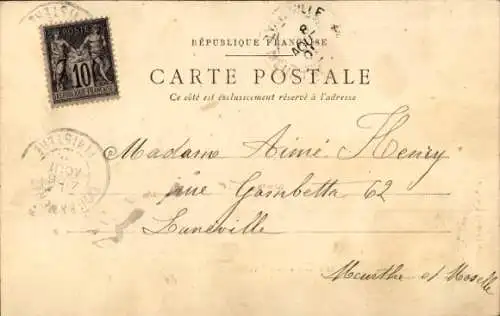 POSTE
10
RÉPUBLIQUE FRANÇAISE
RÉPUBLIQUE FRANÇAISE
CARTE POSTALE
Ce côté est exclusivement réservé à l'adresse
FINISTÈRE
AOUT
Madame Aimé Henry
rue Gambetta 62
Luneville
Meurthe et Moselle